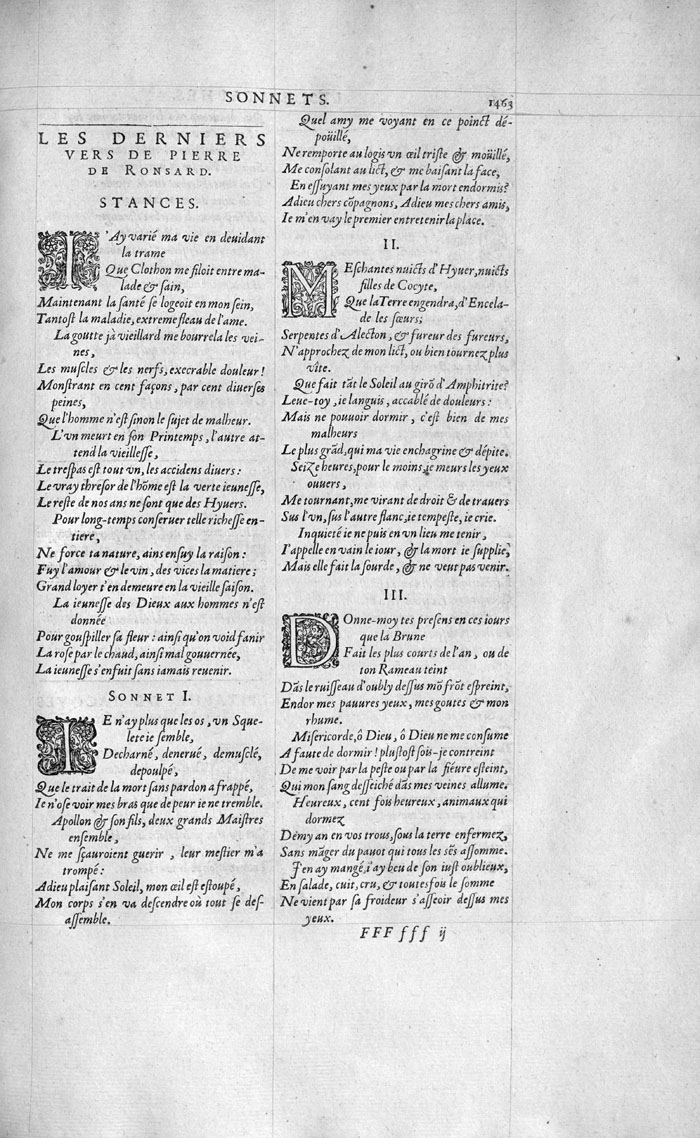 SONNETS.
1463
LES DERNIERS
VERS DE PIERRE
DE RONSARD.
STANCES.
I'Ay varié ma vie en deuidant
la trame
Que Clothon me filoit entre ma-
lade & sain,
Maintenant la santé se logeoit en mon sein,
Tantost la maladie, extreme fleau de l'ame.
La goutte jà vieillard me bourrela les vei-
nes,
Les muscles & les nerfs, execrable douleur!
Monstrant en cent façons, par cent diuerses
peines,
Que l'homme n'est sinon le sujet de malheur.
L'vn meurt en son Printemps, l'autre at-
tend la vieillesse,
Le trespas est tout vn, les accidens diuers:
Le vray thresor de l'hõme est la verte ieunesse,
Le reste de nos ans ne sont que des Hyuers.
Pour long-temps conseruer telle richesse en-
tiere,
Ne force ta nature, ains ensuy la raison:
Fuy l'amour & le vin, des vices la matiere;
Grand loyer t'en demeure en la vieille saison.
La ieunesse des Dieux aux hommes n'est
donnée
Pour gouspiller sa fleur: ainsi qu'on void fanir
La rose par le chaud, ainsi mal gouuernée,
La ieunesse s'enfuit sans iamais reuenir.
SONNET I.
IE n'ay plus que les os, vn Sque-
lete ie semble,
Decharné, denerué, demusclé,
depoulpé,
Que le trait de la mort sans pardon a frappé,
Ie n'ose voir mes bras que de peur ie ne tremble.
Apollon & son fils, deux grands Maistres
ensemble,
Ne me sçauroient guerir, leur mestier m'a
trompé:
Adieu plaisant Soleil, mon œil est estoupé,
Mon corps s'en va descendre où tout se des-
assemble.
Quel amy me voyant en ce poinct dé-
poüillé,
Ne remporte au logis vn œil triste & moüillé,
Me consolant au lict, & me baisant la face,
En essuyant mes yeux par la mort endormis?
Adieu chers cõpagnons, Adieu mes chers amis,
Ie m'en vay le premier entretenir la place.
II.
MEschantes nuicts d'Hyuer, nuicts
filles de Cocyte,
Que la Terre engendra, d'Encela-
de les sœurs;
Serpentes d'Alecton, & fureur des fureurs,
N'approchez de mon lict, ou bien tournez plus
vîte.
Que fait tãt le Soleil au girõ d'Amphitrite?
Leue-toy, ie languis, accablé de douleurs:
Mais ne pouuoir dormir, c'est bien de mes
malheurs
Le plus grãd, qui ma vie enchagrine & dépite.
Seize heures, pour le moins, ie meurs les yeux
ouuers,
Me tournant, me virant de droit & de trauers
Sus l'vn, sus l'autre flanc, ie tempeste, ie crie.
Inquieté ie ne puis en vn lieu me tenir,
I'appelle en vain le iour, & la mort ie supplie,
Mais elle fait la sourde, & ne veut pas venir.
III.
DOnne-moy tes presens en ces iours
que la Brune
Fait les plus courts de l'an, ou de
ton Rameau teint
Dãs le ruisseau d'oubly dessus mõ frõt espreint,
Endor mes pauures yeux, mes goutes & mon
rhume.
Misericorde, ô Dieu, ô Dieu ne me consume
A faute de dormir! plustost sois-je contreint
De me voir par la peste ou par la fiéure esteint,
Qui mon sang desseiché dãs mes veines allume.
Heureux, cent fois heureux, animaux qui
dormez
Démy an en vos trous, sous la terre enfermez,
Sans mãger du pauot qui tous les sẽs assomme.
J'en ay mangé, i'ay beu de son iust oublieux,
En salade, cuit, cru, & toutesfois le somme
Ne vient par sa froideur s'asseoir dessus mes
yeux.
FFF fff ij